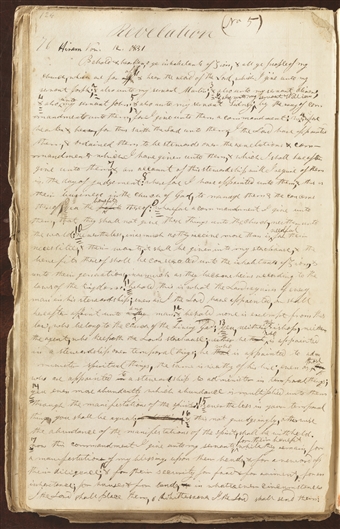 124
Revelation (No 5)
Hiram Nov. 12. 1831
Behold & hearken, ye inhabitants of Zion, & all ye people of my
Church, which are far off & hear the word of the Lord, which I give unto my
servant Joseph, & also unto my servant Martin, & also unto my servant Oliver,
& also unto my servant John, & also unto my servant Sidney by the way of com
mandment unto them, for I give unto them a commandment: wherefore
hearken & hear, for thus saith the Lord unto them, I the Lord have appointed
them, & ordained them to be stewards over the revelations & com
mandments which I have given unto them, & which I shall hereafter
give unto them, & an account of this stewardship will I require of them
in the day of judgement: wherefore I have appointed unto them, this is
their business in the Church of God, to manage them, & the concerns
thereof yea the benefits thereof, wherefore a commandment I give unto
them, that they shall not give these things unto the Church, neither unto
the world, nevertheless, inasmuch as they receive more than is needful for their
necessities, & their wants, it shall be given into my storehouse, & the
benefits thereof shall be consecrated unto the inhabitants of Zion, &
unto their generations, inasmuch as they become heirs according to the
laws of the Kingdom. behold this is what the Lord requires of every
man in his stewardship, even as I the Lord have appointed, or shall
hereafter appoint unto any man. & behold none is exempt from this
law, who belong to the Church of the living God; yea, neither the bishop, neither
the agent, who keepeth the Lord's storehouse; neither he who is appointed
in a stewardship over temporal things; he who is appointed to ad
minister spiritual things, the same is worthy of his hire, even as those
who are appointed to a stewardship to administer in temporal things;
yea even more abundantly, which abundance is multiplied unto them
through the manifestations of the spirit; nevertheless in your temporal
things you shall be equal, & this not grudgingly, otherwise
the abundance of the manifestations of the spirit shall be withheld.
now this commandment I give unto my servants for their benefit while they remain, for
a manifestation of my blessings upon their heads, & for a reward of
their diligence; & for their security, for food & for raiment, for an
inheritance; for houses & for lands, in whatsoever circumstances
I the Lord shall place them, & whithersoever I the Lord shall send them